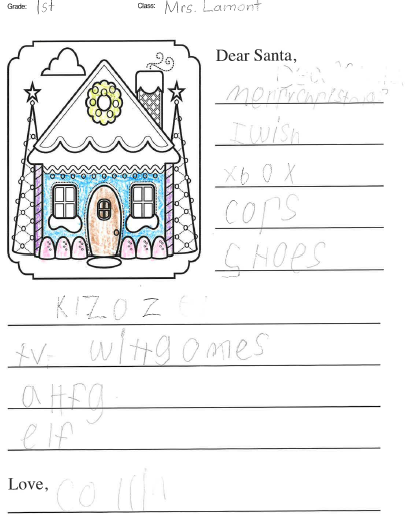 Grade: 1st Class: Mrs. Lamont
Dear Santa,
I wish
xbox
cops
SHOES
KIZOZ
tv. witHgomes
aHfg
elf
Love,